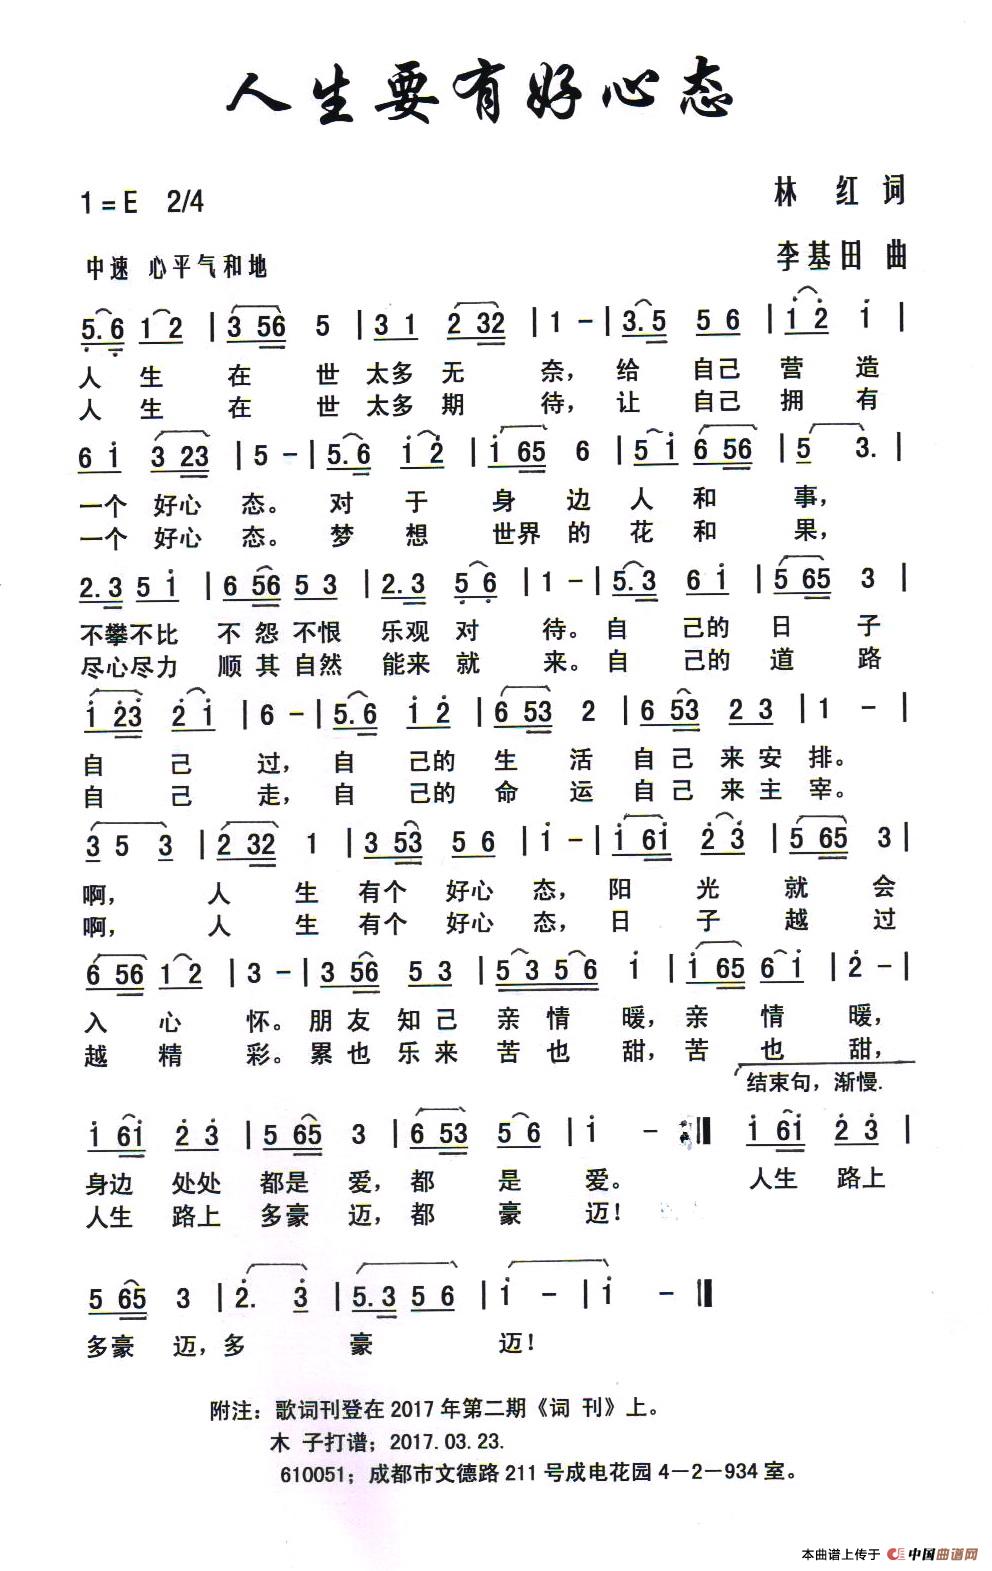 人生要有好心态
1=E 2/4
林 红 词
中速 心平气和地
李基田 曲
5.6 1 2 | 3 56 5 | 3 1 2 32 | 1 - | 3.5 5 6 | i 2 i |
人 生 在 世 太多 无 奈， 给 自己 营 造
人 生 在 世 太多 期 待， 让 自己 拥 有
6 i 3 23 | 5 - | 5.6 i 2 | i 65 6 | 5 i 6 56 | 5 3. |
一个 好心 态。 对 于 身 边 人 和 事，
一个 好心 态。 梦 想 世界 的 花 和 果，
2.3 5 i | 6 56 5 3 | 2.3 5 6 | 1 - | 5.3 6 i | 5 65 3 |
不攀不比 不 怨 不恨 乐观 对 待。 自 己的 日 子
尽心尽力 顺 其 自然 能来 就 来。 自 己的 道 路
i 23 2 i | 6 - | 5.6 i 2 | 6 53 2 | 6 53 2 3 | 1 - |
自 己 过， 自 己的 生 活 自 己 来 安 排。
自 己 走， 自 己的 命 运 自 己 来 主 宰。
3 5 3 | 2 32 1 | 3 53 5 6 | i - | i 6i 2 3 | 5 65 3 |
啊， 人 生 有个 好心 态， 阳 光 就 会
啊， 人 生 有个 好心 态， 日 子 越 过
6 56 1 2 | 3 - | 3 56 5 3 | 5 3 5 6 i | i 65 6 i | 2 - |
入 心 怀。 朋 友 知 己 亲 情 暖， 亲 情 暖，
越 精 彩。 累 也 乐 来 苦 也 甜， 苦 也 甜，
结束句，渐慢.
i 6i 2 3 | 5 65 3 | 6 53 5 6 | i - :‖ i 6i 2 3 |
身边 处处 都是 爱， 都 是 爱。 人生 路上
人生 路上 多豪 迈， 都 豪 迈！
5 65 3 | 2. 3 | 5.3 5 6 | i - | i - ‖
多豪 迈， 多 豪 迈！
附注：歌词刊登在2017年第二期《词 刊》上。
木 子打谱；2017.03.23.
610051；成都市文德路211号成电花园4-2-934室。
本曲谱上传于 中国曲谱网